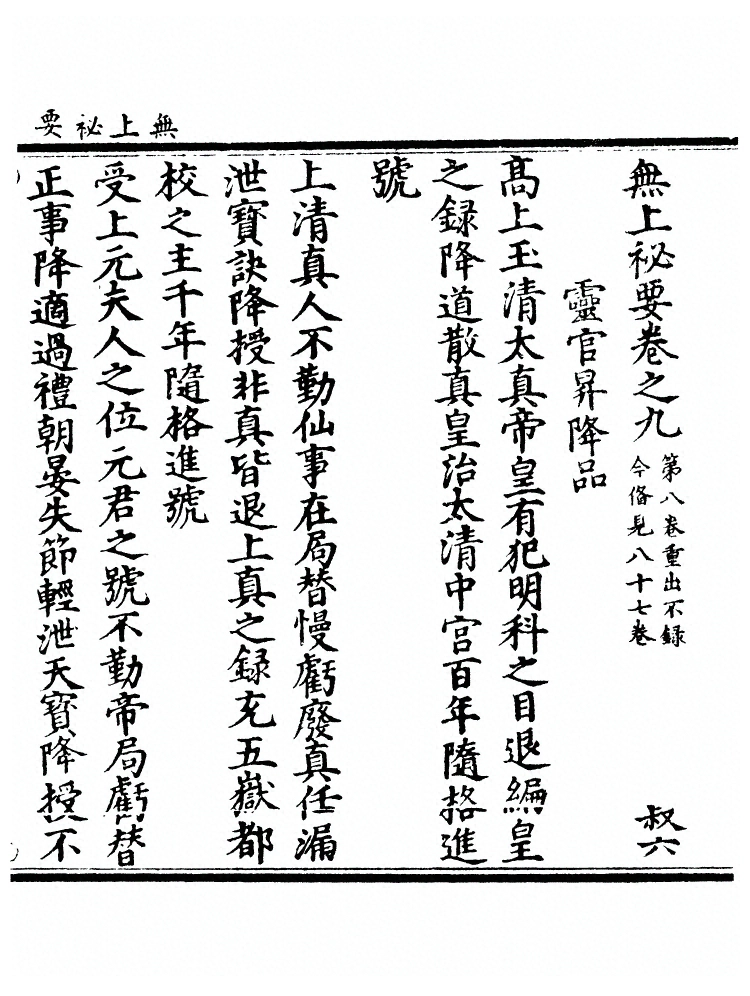 無上祕要
無上祕要卷之九
第八卷重出不録
今俻見八十七卷
叔六
靈官昇降品
髙上玉清太真帝皇有犯明科之目退編皇
之録降道散真皇治太清中宫百年隨格進
號
上清真人不勤仙事在局替慢虧廢真任漏
泄寶訣降授非真皆退上真之録充五嶽都
校之主千年隨格進號
受上元夫人之位元君之號不勤帝局虧替
正事降適過禮朝晏失節輕泄天寶降授不